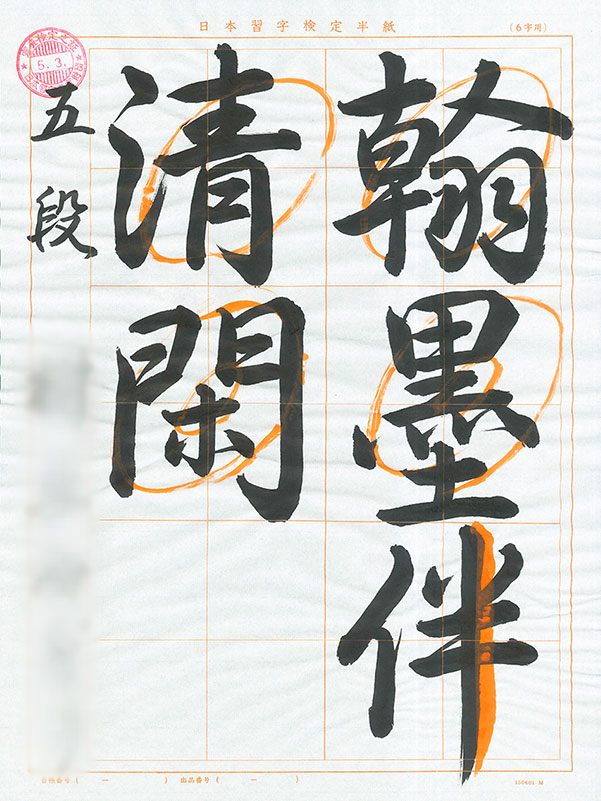 日本習字検定半紙
(6字用)
翰墨伴
清閑
五段
5.3.
出品番号( ー )
150601 M